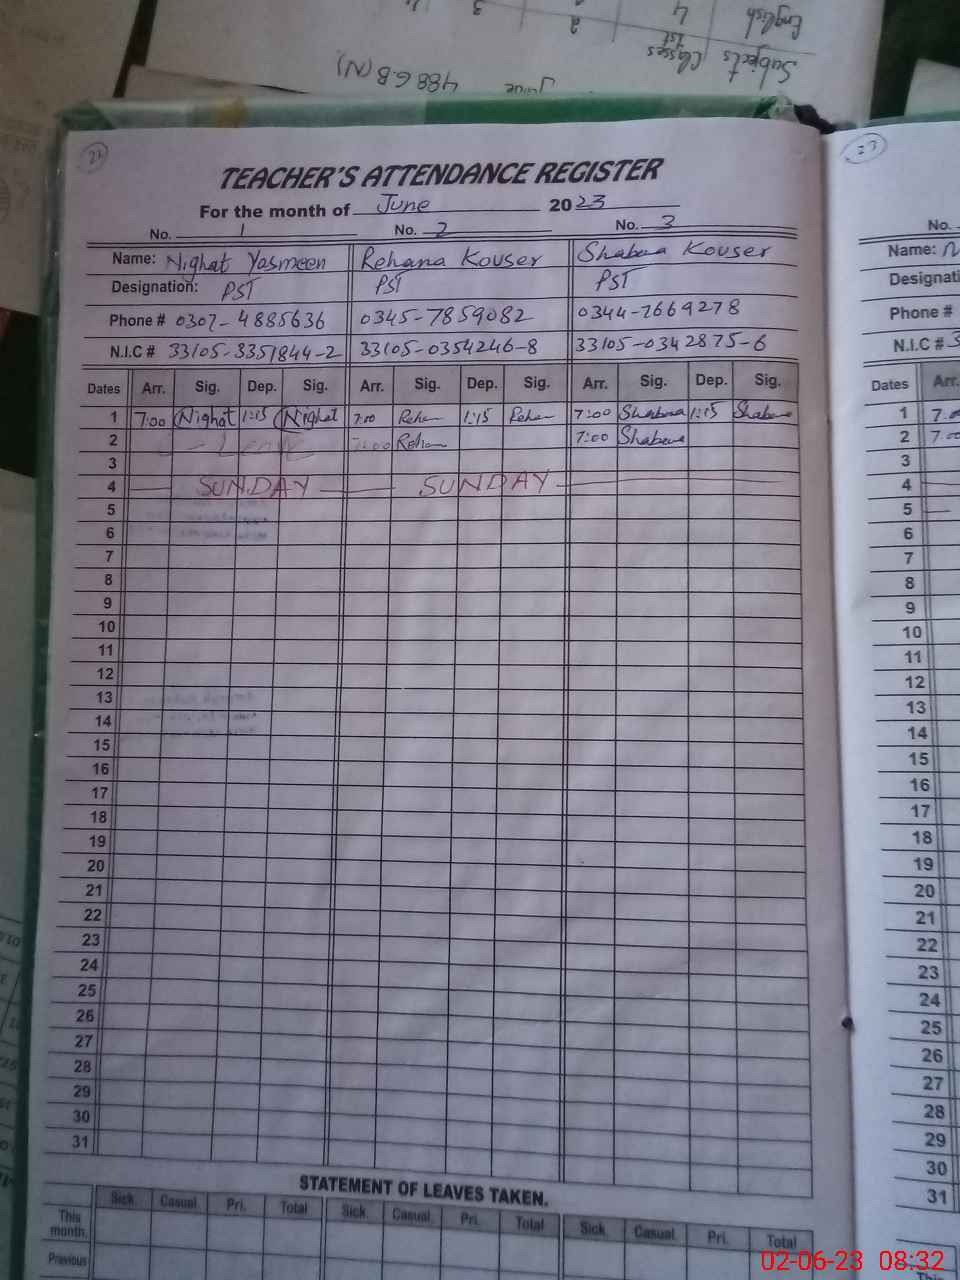 English 4 2 3
Subjects Classes 1st
June 488 G.B (N)
22
TEACHER'S ATTENDANCE REGISTER
For the month of June 2023
No. 1 No. 2 No. 3
Name: Nighat Yasmeen Rehana Kouser Shabana Kouser
Designation: PST PST PST
Phone # 0307-4885636 0345-7859082 0344-7669278
N.I.C # 33105-3351844-2 33105-0354246-8 33105-0342875-6
Dates Arr. Sig. Dep. Sig. Arr. Sig. Dep. Sig. Arr. Sig. Dep. Sig.
1 7:00 Nighat 1:15 Nighat 7:00 Rehan 1:15 Rehan 7:00 Shabana 1:15 Shabana
2 7:00 Rehan 7:00 Shabana
3
4 SUNDAY SUNDAY
5
6
7
8
9
10
11
12
13
14
15
16
17
18
19
20
21
22
23
24
25
26
27
28
29
30
31
STATEMENT OF LEAVES TAKEN.
Sick Casual Pri. Total Sick Casual Pri. Total Sick Casual Pri. Total
This month
Previous
23
No.
Name:
Designati
Phone #
N.I.C #
Dates Arr.
1 7:00
2 7:00
3
4
5
6
7
8
9
10
11
12
13
14
15
16
17
18
19
20
21
22
23
24
25
26
27
28
29
30
31
02-06-23 08:32